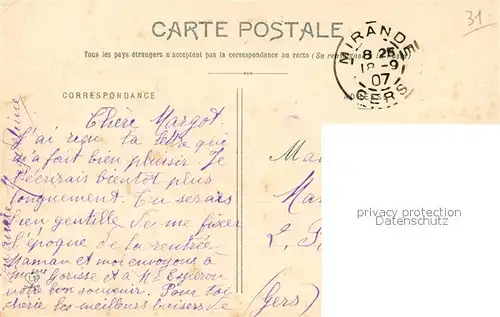 31
CARTE POSTALE
Tous les pays étrangers n'acceptent pas la correspondance au recto (Se
MIRANDE
8 25
18 -9
07
GERS
CORRESPONDANCE
Chère Margot.
J'ai reçu ta lettre qui
m'a fait bien plaisir. Je
t'écrirais bientôt plus
longuement. Tu serais
bien gentille de me fixer
l'époque de la rentrée
Maman et moi envoyons à
Mme Gorisse et à Mr Esperou
notre bon souvenir. Pour toi
chérie les meilleurs baisers de
Ma
Ma
L
(Gers)
privacy protection
Datenschutz